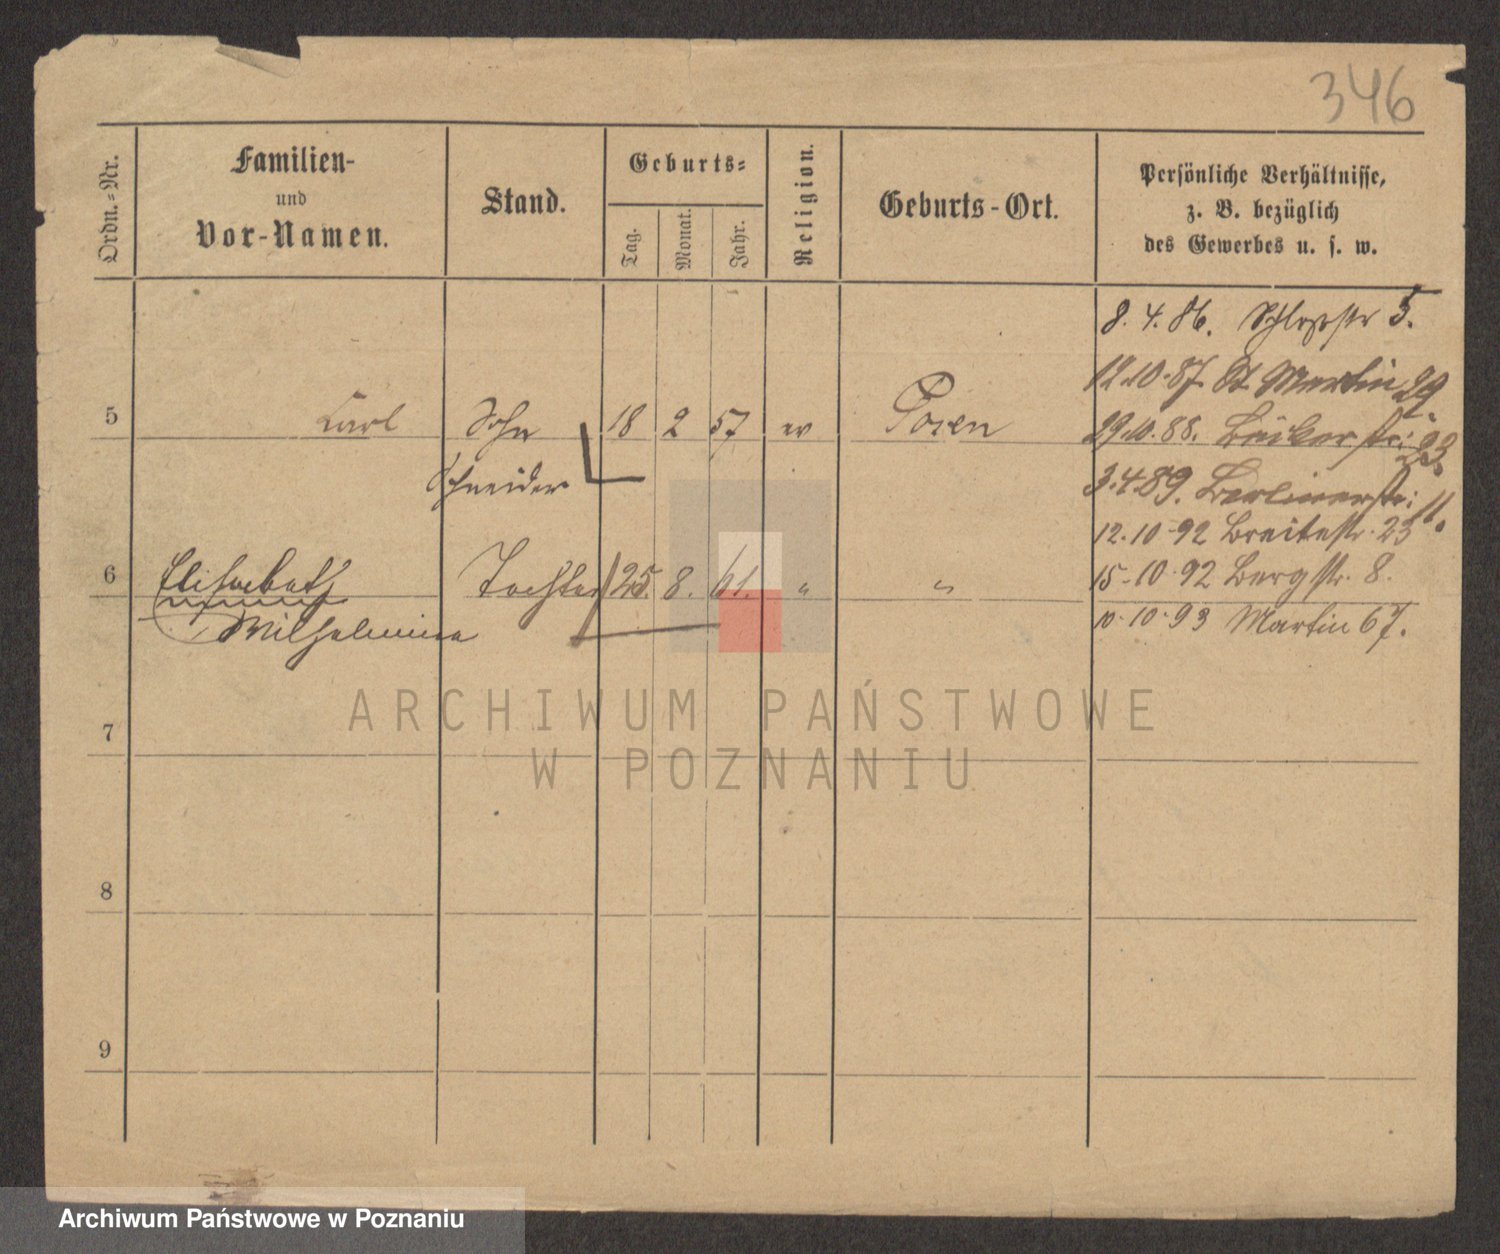 346
Ordn.-Nr.
Familien-
und
Vor-Namen.
Stand.
Geburts-
Tag.
Monat.
Jahr.
Religion.
Geburts-Ort.
Persönliche Verhältnisse,
z. B. bezüglich
des Gewerbes u. s. w.
8. 4. 86. Schloßstr 5.
12.10.87 St Martin 29.
5 Carl Sohn 18 2 57 ev Posen
29.10.88. 23.
Schneider
3.4.89. Berlinerstr: 11.
12.10.92 Breitestr. 23
6 Elisabeth Tochter 25. 8. 61. " "
15.10.92 Bergstr. 8.
Wilhelmina
10.10.93 Martin 67.
7
8
9
ARCHIWUM PAŃSTWOWE
W POZNANIU
Archiwum Państwowe w Poznaniu